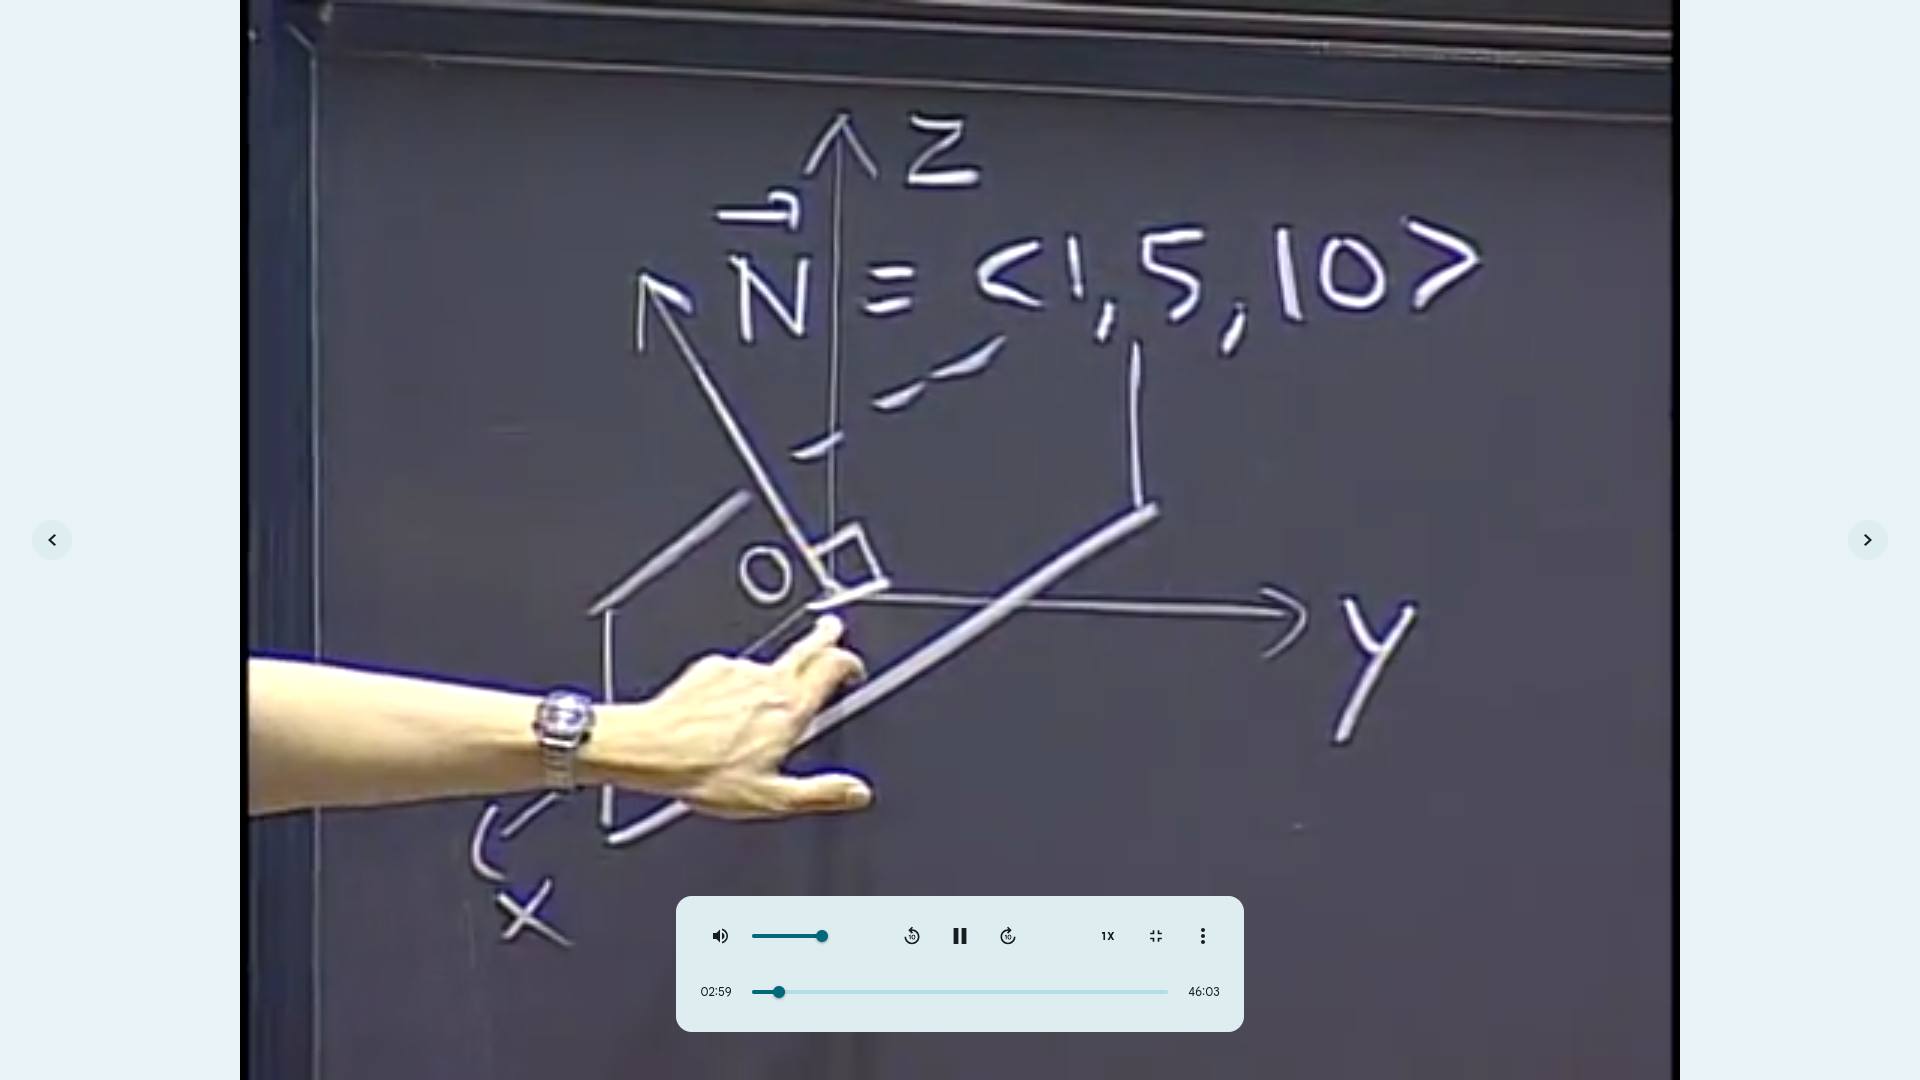 Z
N⃗ = <1,5,10>
O
y
x
1X
02:59
46:03